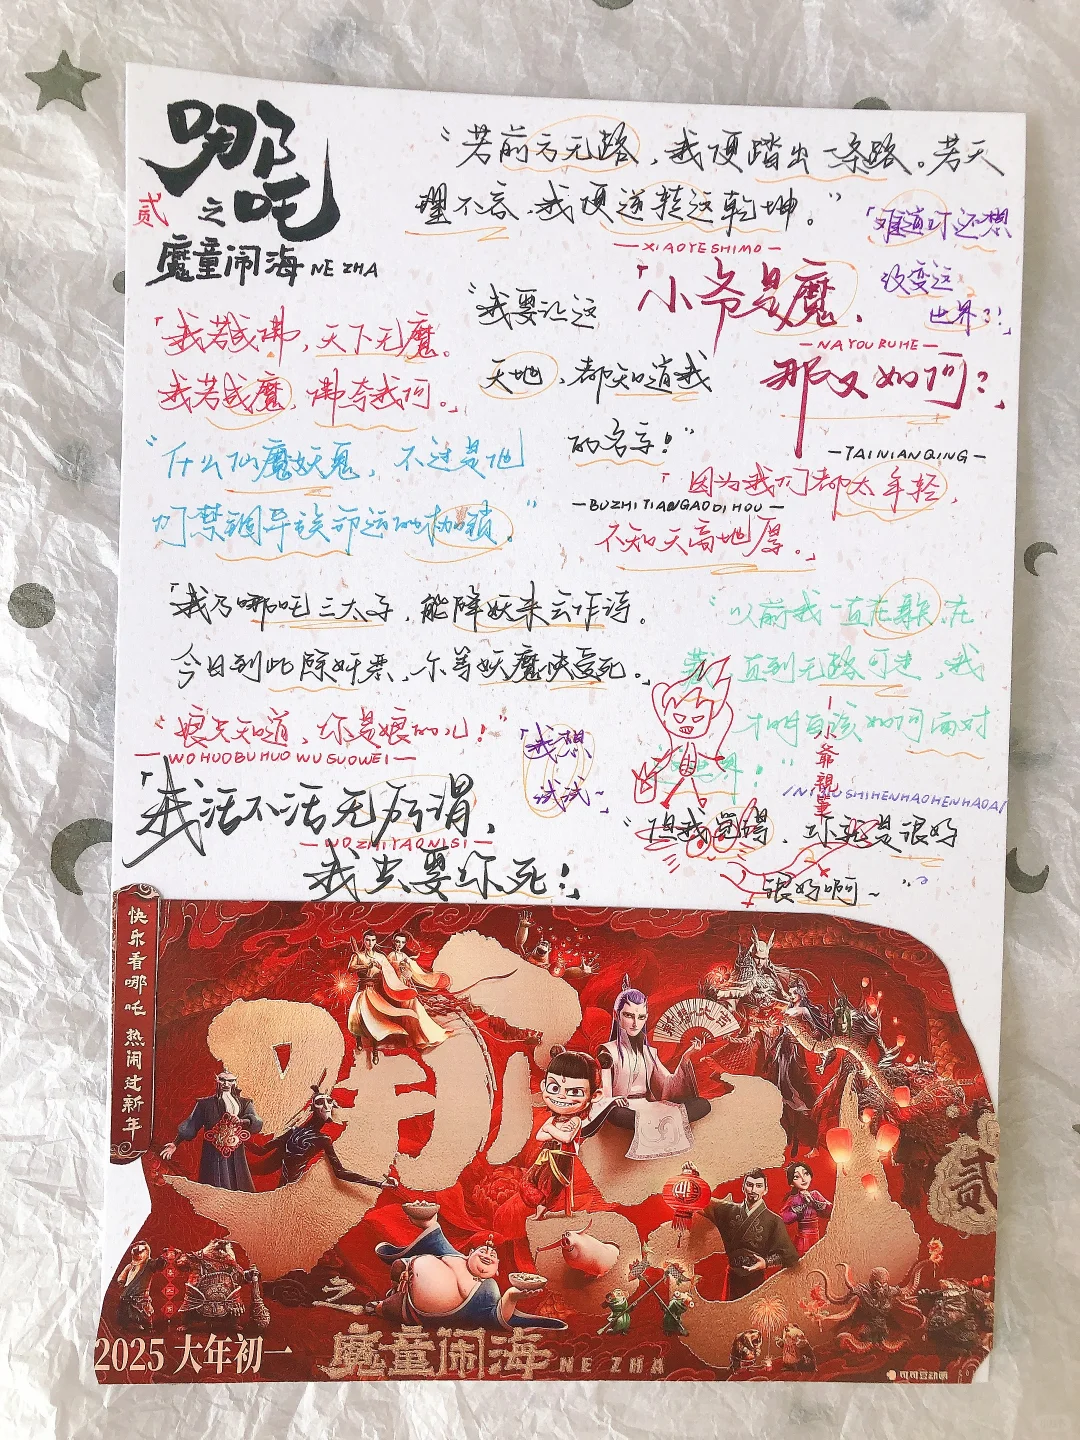 哪吒
贰
之
魔童闹海 NE ZHA
“若前方无路，我便踏出一条路。若天
理不容，我便逆转这乾坤。”
「难道时还想
改变这
世界?!」
—XIAOYESHIMO—
「小爷是魔，
—NAYOURUHE—
那又如何?」
「我若成佛，天下无魔。
我若成魔，佛奈我何。」
“我要让这
天地，都知道我
的名字！”
“什么仙魔妖鬼，不过是他
们禁锢异族命运的枷锁。”
—TAINIANQING—
「因为我们都太年轻，
—BUZHITIANGAODIHOU—
不知天高地厚。」
「我乃哪吒三太子，能降妖来会作诗。
今日到此除奸祟，尔等妖魔快受死。」
“以前我一直在躲，在
直到无路可走，我
才明白该如何面对
“娘先知道，你是娘的儿！”
—WOHUOBUHUOWUSUOWEI—
「我想
试试~」
「我活不活无所谓，
—WOZHIYAONISI—
我只要你死！」
小爷親畢
/NIJIUSHIHENHAOHENHAOA/
“但我觉得，你就是很好
很好啊~”
快乐看哪吒 热闹过新年
哪吒
贰
之
魔童闹海 NE ZHA
2025 大年初一
可可豆动画